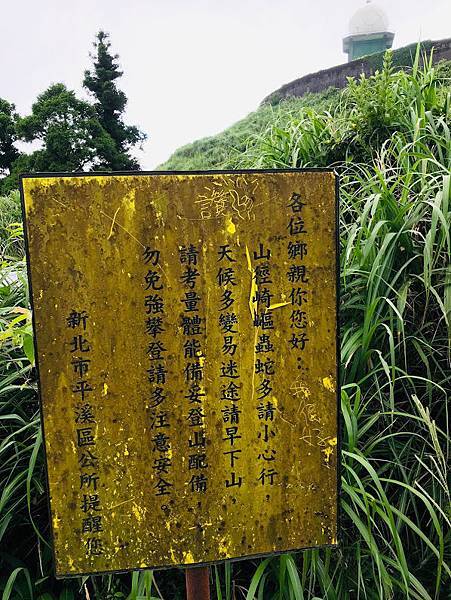 各位鄉親你您好：
山壑崎嶇蟲蛇多請小心行，
天候多變易迷途請早下山，
請考量體能備妥登山配備，
勿免強攀登請多注意安全。
新北市平溪區公所提醒您